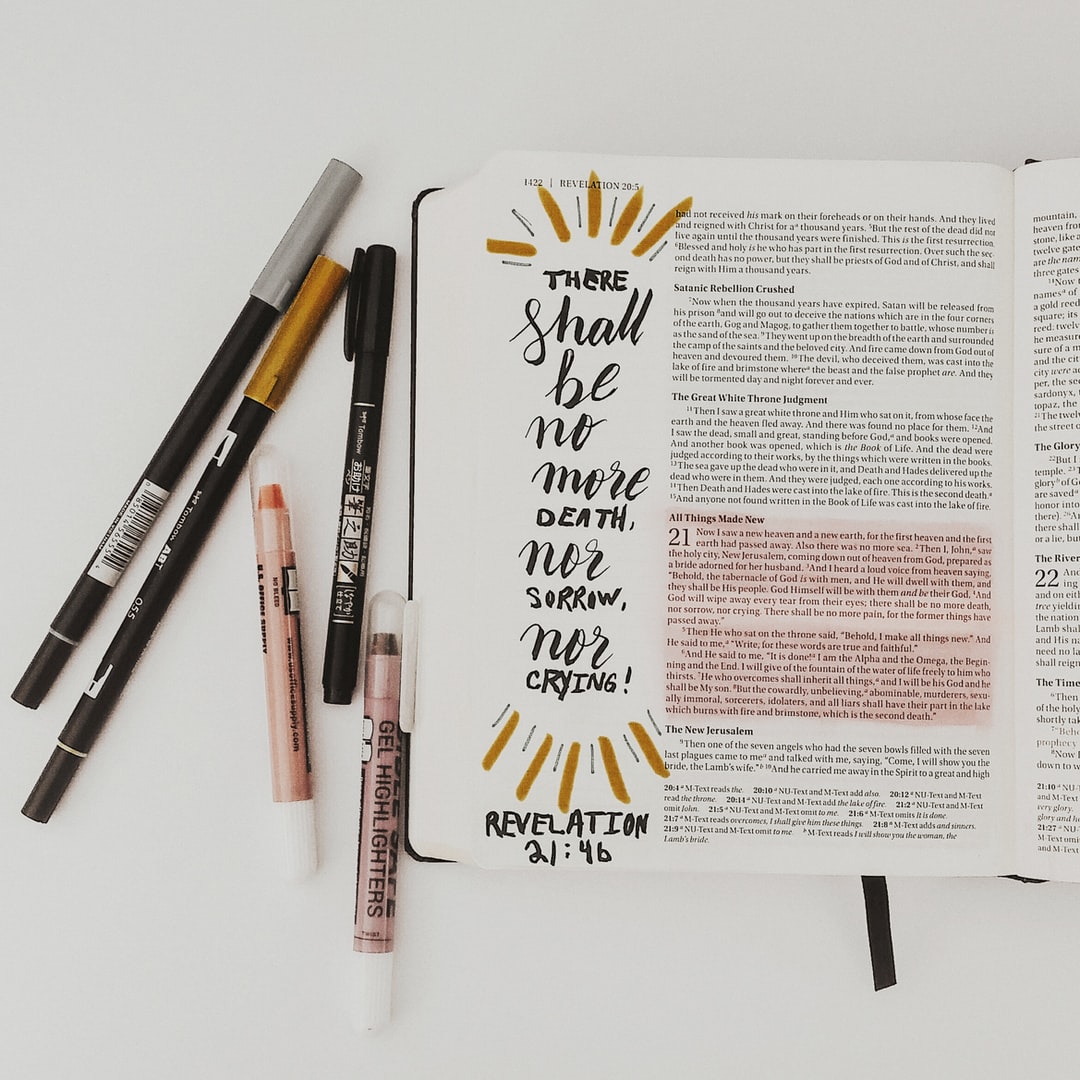 1422 | REVELATION 20:5
THERE
shall
be
no
more
DEATH,
nor
SORROW,
nor
CRYING!
REVELATION
21:4b
had not received his mark on their foreheads or on their hands. And they lived
and reigned with Christ for a thousand years. 5But the rest of the dead did not
live again until the thousand years were finished. This is the first resurrection.
6Blessed and holy is he who has part in the first resurrection. Over such the sec-
ond death has no power, but they shall be priests of God and of Christ, and shall
reign with Him a thousand years.
Satanic Rebellion Crushed
7Now when the thousand years have expired, Satan will be released from
his prison 8and will go out to deceive the nations which are in the four corners
of the earth, Gog and Magog, to gather them together to battle, whose number is
as the sand of the sea. 9They went up on the breadth of the earth and surrounded
the camp of the saints and the beloved city. And fire came down from God out of
heaven and devoured them. 10The devil, who deceived them, was cast into the
lake of fire and brimstone where the beast and the false prophet are. And they
will be tormented day and night forever and ever.
The Great White Throne Judgment
11Then I saw a great white throne and Him who sat on it, from whose face the
earth and the heaven fled away. And there was found no place for them. 12And
I saw the dead, small and great, standing before God, and books were opened.
And another book was opened, which is the Book of Life. And the dead were
judged according to their works, by the things which were written in the books.
13The sea gave up the dead who were in it, and Death and Hades delivered up the
dead who were in them. And they were judged, each one according to his works.
14Then Death and Hades were cast into the lake of fire. This is the second death.
15And anyone not found written in the Book of Life was cast into the lake of fire.
All Things Made New
21 Now I saw a new heaven and a new earth, for the first heaven and the first
earth had passed away. Also there was no more sea. 2Then I, John, saw
the holy city, New Jerusalem, coming down out of heaven from God, prepared as
a bride adorned for her husband. 3And I heard a loud voice from heaven saying,
"Behold, the tabernacle of God is with men, and He will dwell with them, and
they shall be His people. God Himself will be with them and be their God. 4And
God will wipe away every tear from their eyes; there shall be no more death,
nor sorrow, nor crying. There shall be no more pain, for the former things have
passed away."
5Then He who sat on the throne said, "Behold, I make all things new." And
He said to me, "Write, for these words are true and faithful."
6And He said to me, "It is done! I am the Alpha and the Omega, the Begin-
ning and the End. I will give of the fountain of the water of life freely to him who
thirsts. 7He who overcomes shall inherit all things, and I will be his God and he
shall be My son. 8But the cowardly, unbelieving, abominable, murderers, sexu-
ally immoral, sorcerers, idolaters, and all liars shall have their part in the lake
which burns with fire and brimstone, which is the second death."
The New Jerusalem
9Then one of the seven angels who had the seven bowls filled with the seven
last plagues came to me and talked with me, saying, "Come, I will show you the
bride, the Lamb's wife." 10And he carried me away in the Spirit to a great and high
20:4 a M-Text reads the. 20:10 a NU-Text and M-Text add also. 20:12 a NU-Text and M-Text
read the throne. 20:14 a NU-Text and M-Text add the lake of fire. 21:2 a NU-Text and M-Text
omit John. 21:5 a NU-Text and M-Text omit to me. 21:6 a M-Text omits It is done.
21:7 a M-Text reads overcomes, I shall give him these things. 21:8 a M-Text adds and sinners.
21:9 a NU-Text and M-Text omit to me. b M-Text reads I will show you the woman, the
Lamb's bride.
mountain,
heaven
stone, like
twelve gate
are the nam
three gates
names of
a gold reed
square; its
reed: twelv
he measure
sure of a m
and the cit
city were
per, the sec
sardonyx,
topaz, the
the street
The Glory
temple.
glory of G
are saved
honor into
there).
there shall
or a lie, but
The River
22 And
ing
and on eith
tree yielding
the nation
Lamb shall
and His na
need no la
shall reign
The Time
6Then
of the holy
shortly tak
prophecy
down to w
21:10 a NU-T
and M-Text
very glory.
glory and
21:27 a NU
M-Text omi
and M-Text
Tombow ABT
055
Tombow
NO BLEED
U.S. OFFICE SUPPLY
www.usofficesupply.com
GEL HIGHLIGHTERS
TWIST